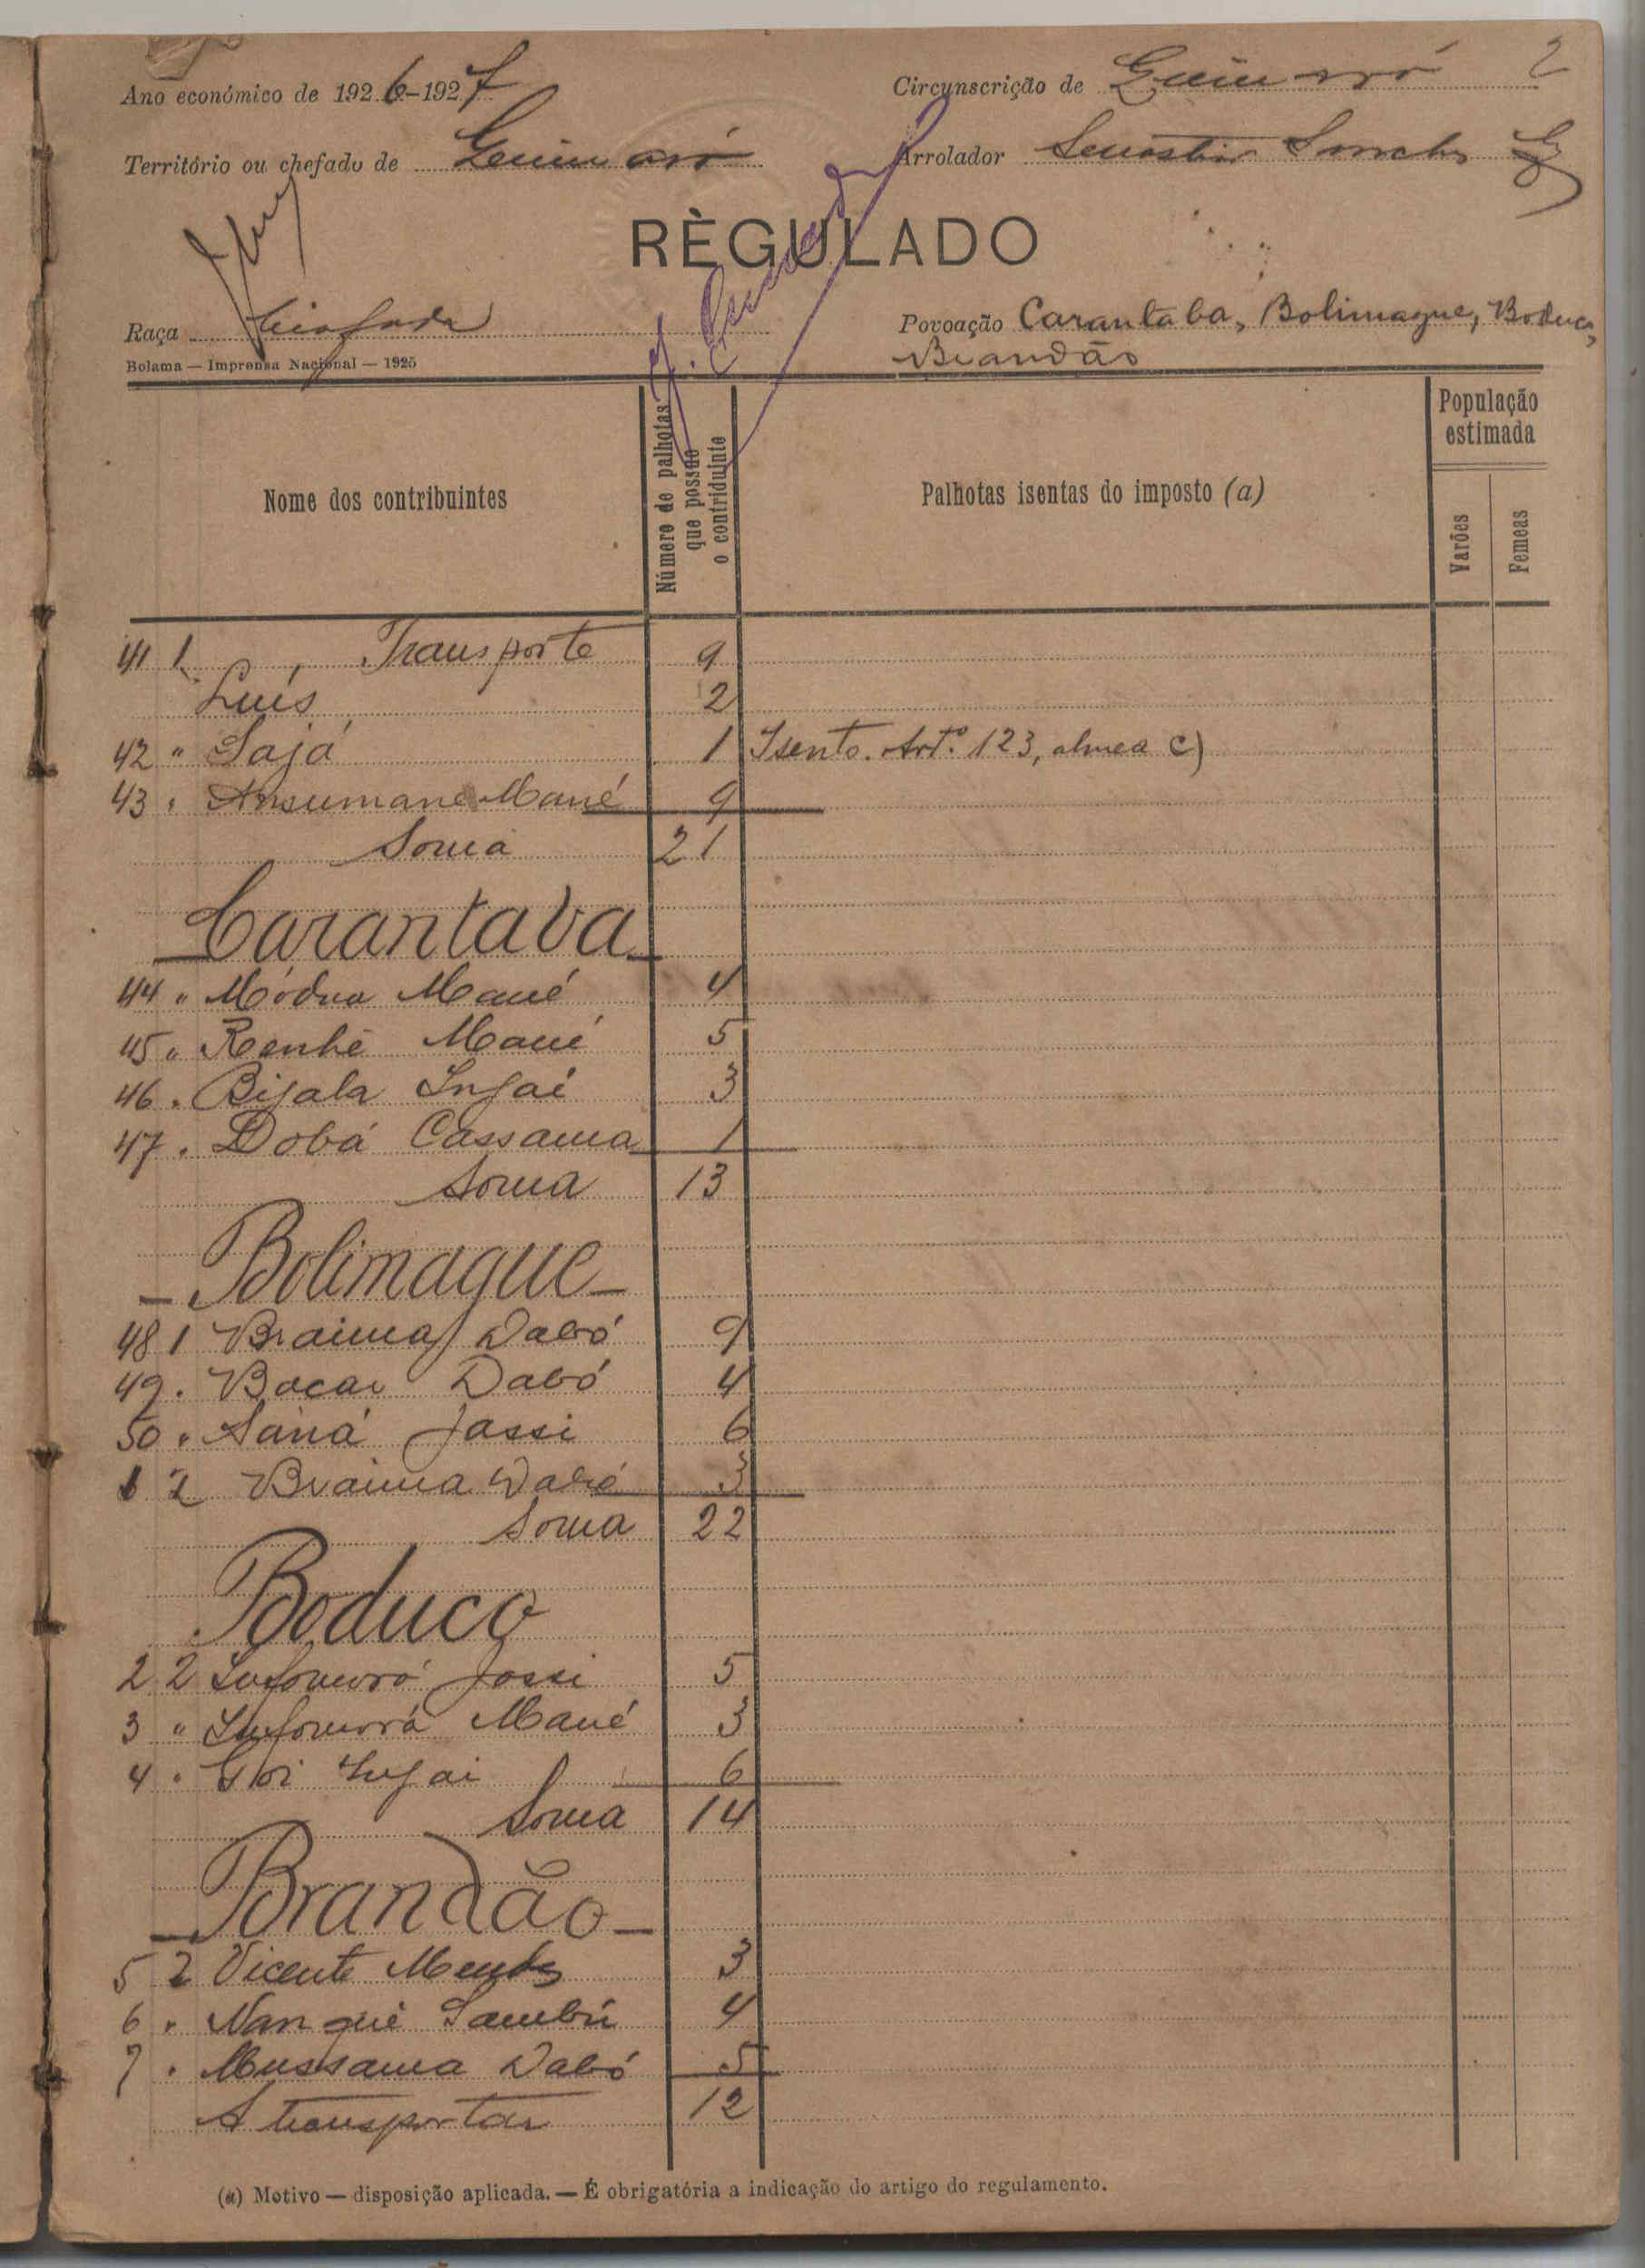 2
Ano económico de 1926-1927
Circunscrição de
Território ou chefado de
Arrolador
RÈGULADO
Raça
Povoação Carantaba, Bolimague, Boduco,
Brandão
Bolama — Imprensa Nacional — 1925
Nome dos contribuintes
Número de palhotas
que possue
o contriduinte
Palhotas isentas do imposto (a)
População
estimada
Varões
Femeas
41 1 Transporte 9
Luís 2
42 " Sajá 1 Isento. Artº 123, alinea c)
43 " Ansumane Mané 9
Soma 21
Carantaba
44 " Módua Mané 4
45 " Renhê Mané 5
46 " Bijala Injai 3
47 " Dobá Cassama 1
Soma 13
Bolimague
48 1 Braima Dabó 9
49 " Bacar Dabó 4
50 " Saná Jassi 6
1 2 Braima Dabó 3
Soma 22
Boduco
2 2 Jassi 5
3 " Mané 3
4 " Injai 6
Soma 14
Brandão
5 2 Vicente Mendes 3
6 " Nanqué Sambú 4
7 " Mussama Dabó 5
A transportar 12
(a) Motivo — disposição aplicada. — É obrigatória a indicação do artigo do regulamento.